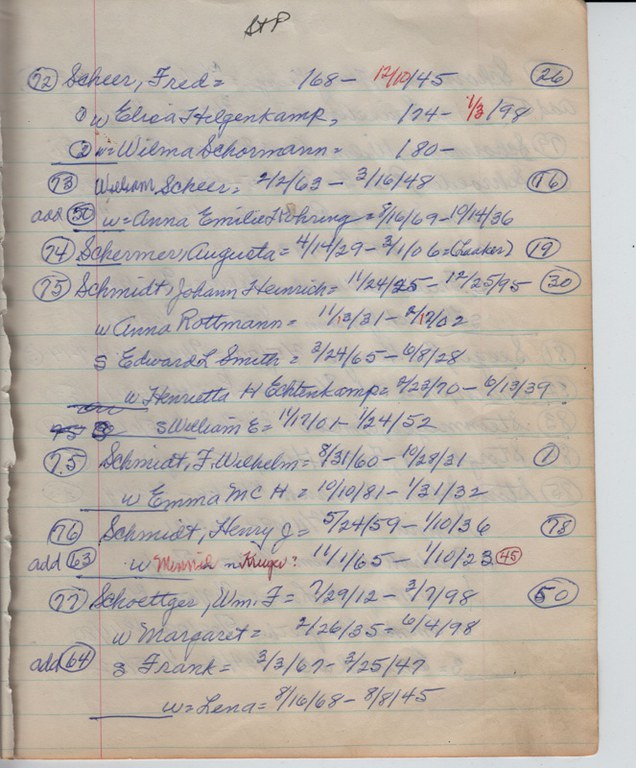 StP
72 Scheer, Fred = 168 – 12/10/45 26
1 w Elisa Helgenkamp, 174 – 1/3/98
2 w = Wilma Schormann = 180 –
73 William Scheer = 2/2/63 – 3/16/48 76
add 50 w = Anna Emilie = 8/16/69 – 10/14/36
74 Schermer, Augusta = 4/14/29 – 3/1/06 = (Laaker) 19
75 Schmidt, Johann Heinrich = 11/24/25 – 12/25/95 30
w Anna Rottmann = 11/13/31 – 2/17/02
s Edward L Smith = 3/24/65 – 6/8/28
w Henrietta H Echtenkamp = 2/23/70 – 6/13/39
s William E = 11/17/01 – 1/24/52
7.5 Schmidt, F. Wilhelm = 8/31/60 – 10/28/31 1
w Emma Mc H = 10/10/81 – 1/31/32
76 Schmidt, Henry J = 5/24/59 – 1/10/36 78
add 63 w n Kruger? 11/1/65 – 1/10/23 45
77 Schoettger, Wm. F = 7/29/12 – 3/7/98 50
w Margaret = 2/26/35 = 6/4/98
add 64 s Frank = 3/3/67 – 3/25/47
w = Lena = 8/16/68 – 8/8/45